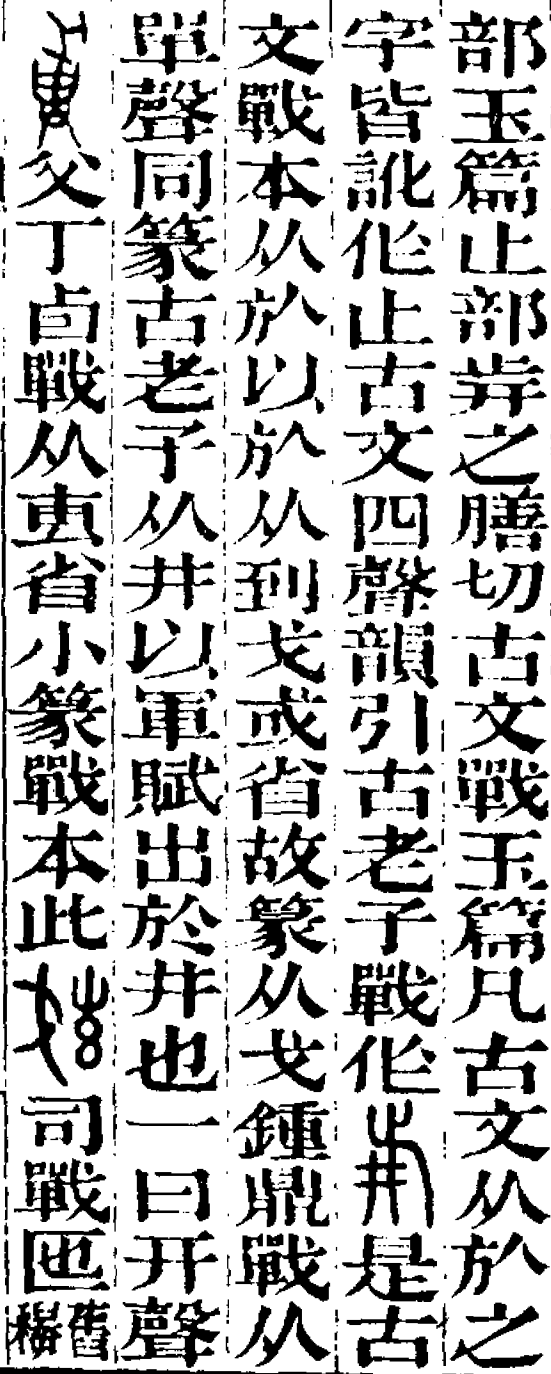 部玉篇止部𣥺之膳切古文戰玉篇凡古文从㫃之
字皆訛作止古文四聲韻引古老子戰作是古
文戰本从㫃以㫃从到戈或省故篆从戈鍾鼎戰从
單聲同篆古老子从井以軍賦出於井也一曰开聲
父丁卣戰从叀省小篆戰本此司戰匜舊稱